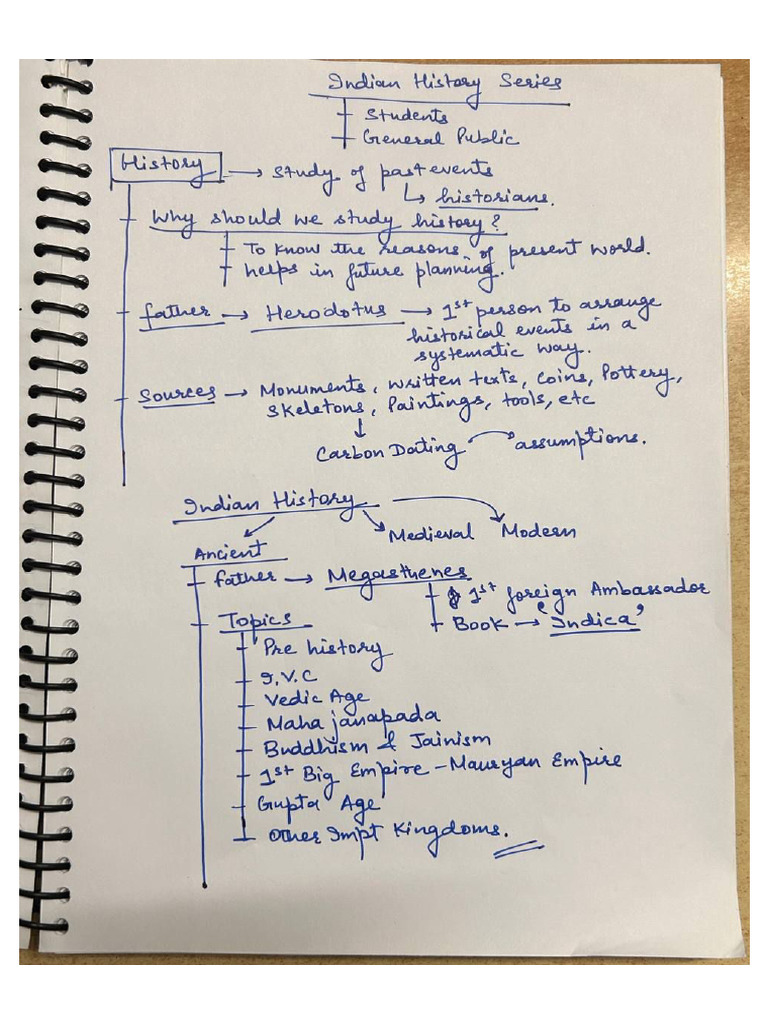 Indian History Series
Students
General Public
History → Study of past events
↳ historians.
Why should we study history?
To know the reasons of present world.
helps in future planning.
father → Herodotus → 1st person to arrange
historical events in a
systematic way.
Sources → Monuments, written texts, coins, Pottery,
skeletons, Paintings, tools, etc
↓
Carbon Dating → assumptions.
Indian History
Medieval Modern
Ancient
father → Megasthenes
1st foreign Ambassador
Book → 'Indica'
Topics
Pre history
I.V.C
Vedic Age
Maha janapada
Buddhism & Jainism
1st Big Empire - Mauryan Empire
Gupta Age
Other Impt Kingdoms.